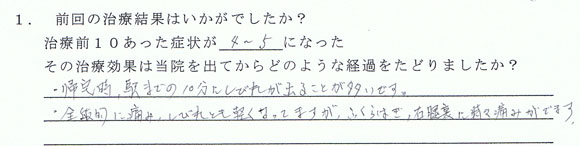 1． 前回の治療結果はいかがでしたか？
治療前１０あった症状が 4～5 になった
その治療効果は当院を出てからどのような経過をたどりましたか？
・帰宅時、駅までの10分にしびれが出ることが多いです。
・全般的に痛み、しびれとも軽くなってますが、ふくらはぎ、右腿裏に時々痛みがでます。